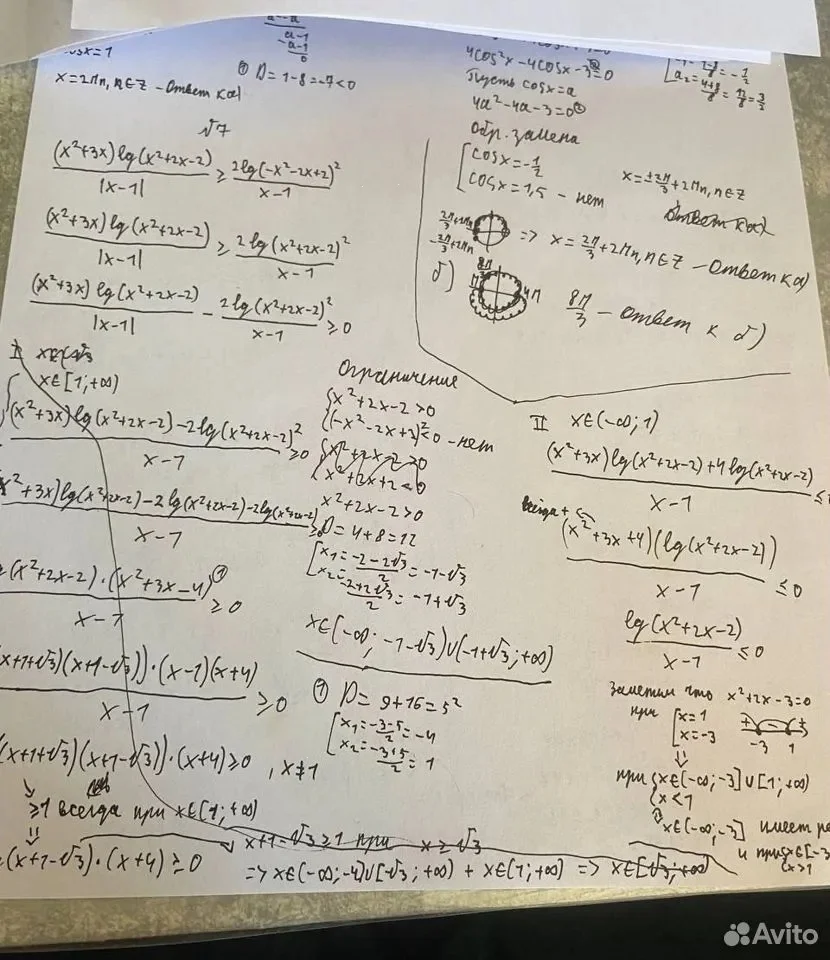 cosx=1
x=2πn, n∈Z - Ответ к а)
① D=1-8=-7<0
а-1
-а-1
0
4cos²x-4cosx-3=0
Пусть cosx=a
4a²-4a-3=0
Обр. замена
[cosx=-1/2
[cosx=1,5 - нет
x=±2π/3+2πn, n∈Z
Ответ к а)
a₂=(4+8)/8=12/8=3/2
=> x=2π/3+2πn, n∈Z - Ответ к а)
б)
8π/3
4π
8π/3 - ответ к б)
√7
(x²+3x)lg(x²+2x-2)/|x-1| ≥ 2lg(-x²-2x+2)²/x-1
(x²+3x)lg(x²+2x-2)/|x-1| ≥ 2lg(x²+2x-2)²/x-1
(x²+3x)lg(x²+2x-2)/|x-1| - 2lg(x²+2x-2)²/x-1 ≥0
I
x∈[1;+∞)
(x²+3x)lg(x²+2x-2)-2lg(x²+2x-2)²/x-1 ≥0
x²+3x)lg(x²+2x-2)-2lg(x²+2x-2)-2lg(x²+2x-2)/x-1 ≥0
(x²+2x-2)·(x²+3x-4)①/x-1 ≥0
x+1+√3)(x+1-√3))·(x-1)(x+4)/x-1 ≥0
(x+1+√3)(x+1-√3))·(x+4)≥0, x≠1
≥1 всегда при x∈[1;+∞)
(x+1-√3)·(x+4)≥0
x+1-√3≥1 при x≥√3
=> x∈(-∞;-4)∪[√3;+∞) + x∈[1;+∞) => x∈[√3;+∞)
Ограничение
{x²+2x-2>0
{(-x²-2x+2)²<0 - нет
{x²+2x-2>0
{x²+2x+2<0
x²+2x-2>0
D=4+8=12
[x₁=(-2-2√3)/2=-1-√3
[x₂=(-2+2√3)/2=-1+√3
x∈(-∞;-1-√3)∪(-1+√3;+∞)
① D=9+16=5²
[x₁=(-3-5)/2=-4
[x₂=(-3+5)/2=1
II x∈(-∞;1)
(x²+3x)lg(x²+2x-2)+4lg(x²+2x-2)/x-1 ≤
всегда +
(x²+3x+4)(lg(x²+2x-2))/x-1 ≤0
lg(x²+2x-2)/x-1 ≤0
Заметим что x²+2x-3=0
при [x=1
[x=-3
-3 1
при {x∈(-∞;-3]∪[1;+∞)
{x<1
x∈(-∞;-3] имеет ре
и при {x∈[-3
{x>1
Avito